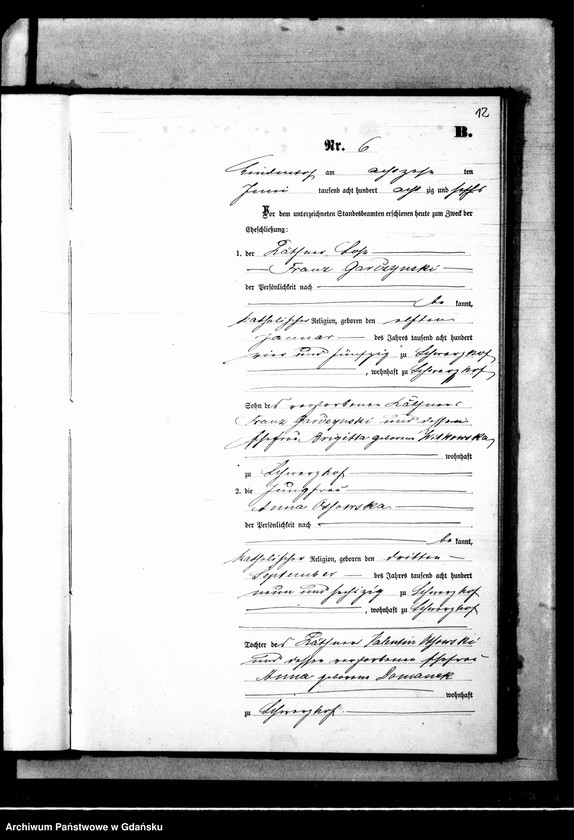 12
B.
Nr. 6
am achtzehn ten
Juni tausend acht hundert acht zig und sechs
Vor dem unterzeichneten Standesbeamten erschienen heute zum Zweck der
Eheschließung:
1. der Käthner Sohn
Franz Garczynski
der Persönlichkeit nach
be kannt,
katholischer Religion, geboren den elften
Januar des Jahres tausend acht hundert
vier und fünfzig zu Schwarzhof
, wohnhaft zu Schwarzhof
Sohn des verstorbenen Käthners
Franz Garczynski und dessen
Ehefrau Brigitta geborene Witkowska
wohnhaft
zu Schwarzhof
2. die Jungfrau
Anna Ossowska
der Persönlichkeit nach
be kannt,
katholischer Religion, geboren den dritten
September des Jahres tausend acht hundert
neun und sechszig zu Schwarzhof
, wohnhaft zu Schwarzhof
Tochter des Käthner Valentin Ossowski
und dessen verstorbenen Ehefrau
Anna geborene Domanek
wohnhaft
zu Schwarzhof
Archiwum Państwowe w Gdańsku